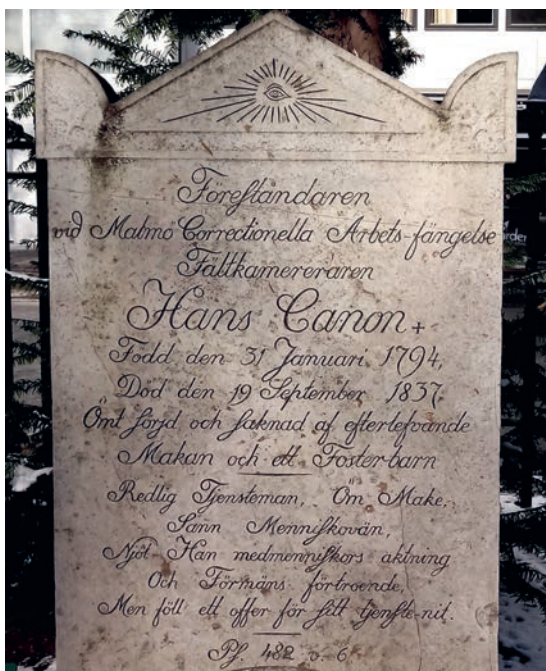 Föreståndaren
vid Malmö Correctionella Arbets-fängelse
Fältkamereraren
Hans Canon +
Född den 31 Januari 1794,
Död den 19 September 1837.
Ömt sörjd och saknad af efterlefvande
Makan och ett Foster-barn
Redlig Tjensteman, Öm Make,
Sann Menniskovän,
Njöt Han medmenniskors aktning
Och Förmäns förtroende,
Men föll ett offer för sitt tjenste-nit.
Ps. 482 v. 6